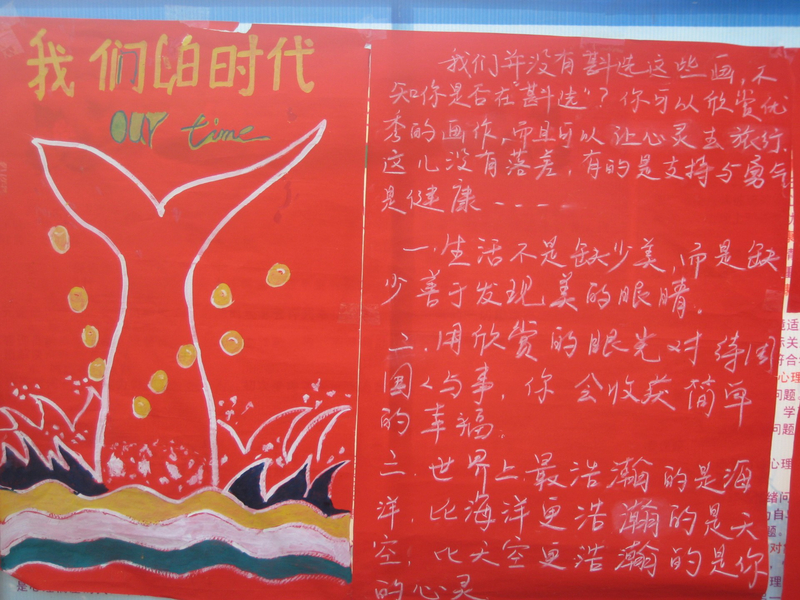 我们的时代
our time
我们并没有斟选这些画,不
知你是否在"斟选"?你可以欣赏优
秀的画作,而且可以让心灵去旅行.
这儿没有落差,有的是支持与勇气
是健康----
一.生活不是缺少美,而是缺
少善于发现美的眼睛。
二.用欣赏的眼光对待周
围人与事,你会收获简单
的幸福.
三.世界上最浩瀚的是海
洋,比海洋更浩瀚的是天
空,比天空更浩瀚的是你
的心灵